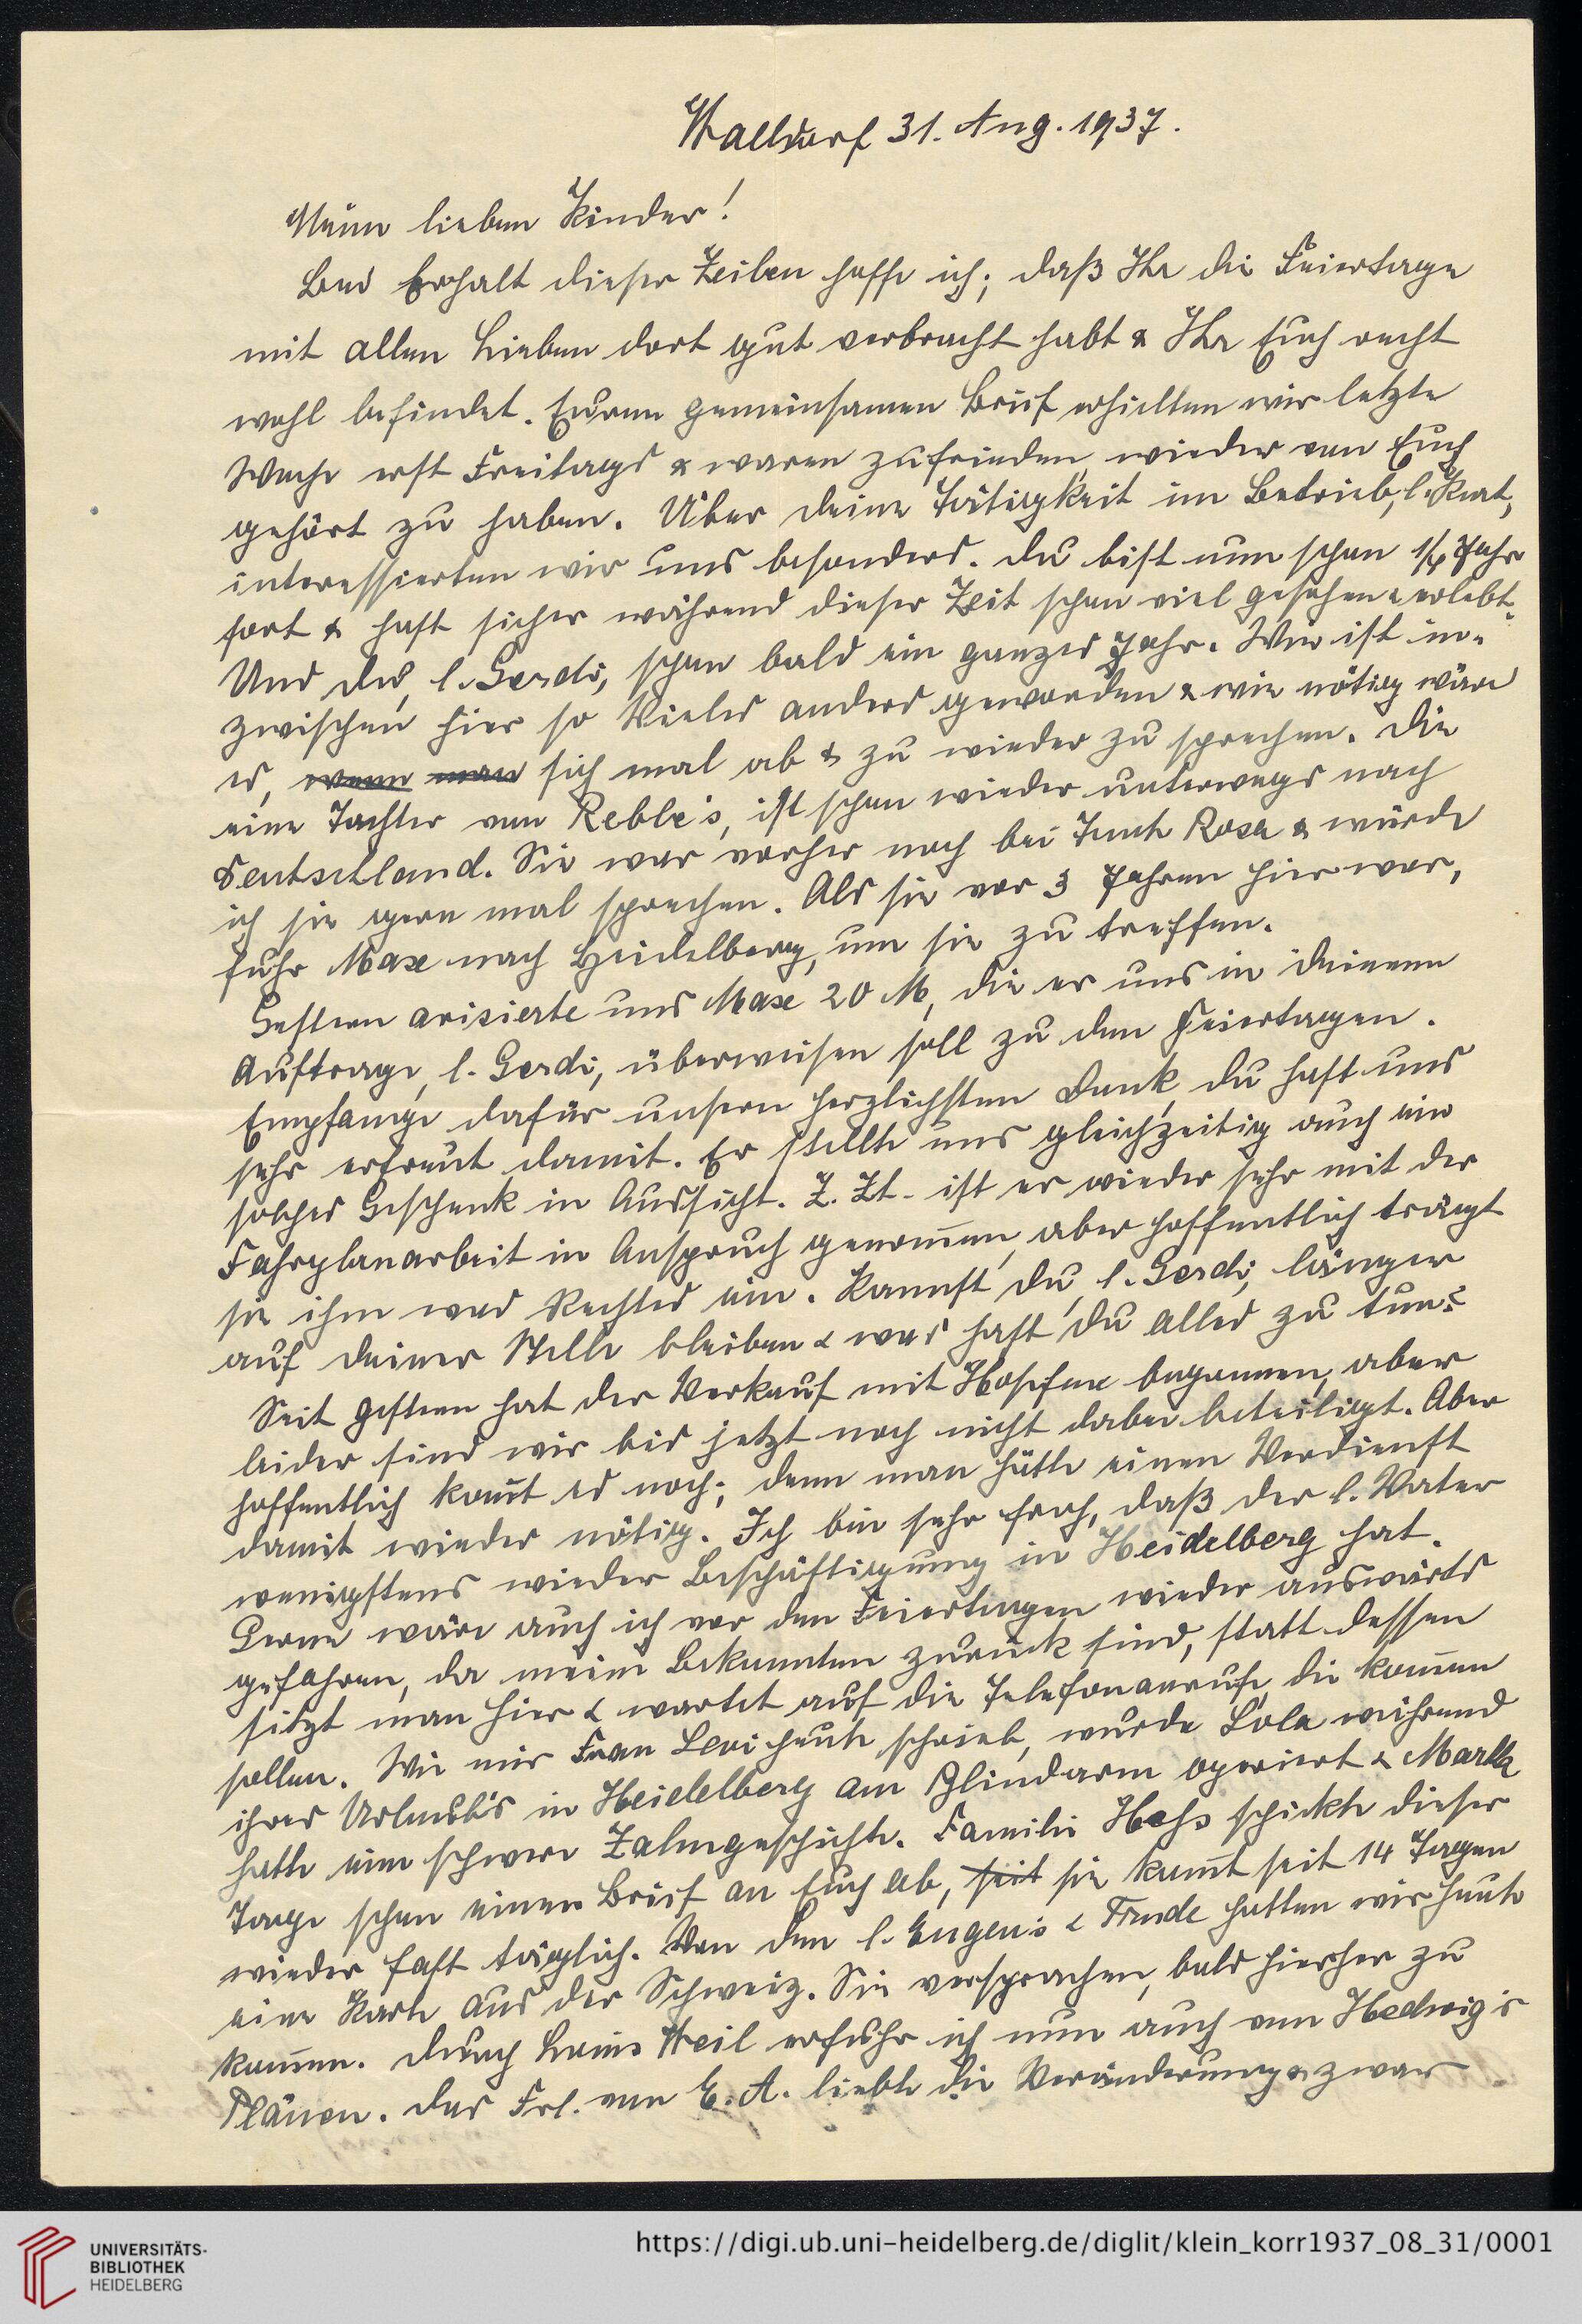 Walldorf 31. Aug. 1937.
Meine lieben Kinder!
Bei Erhalt dieser Zeilen hoffe ich, daß Ihr die Feiertage
mit allen Lieben dort gut verbracht habt & Ihr Euch recht
wohl befindet. Euren gemeinsamen Brief erhielten wir letzte
Woche erst Freitags & waren zufrieden, wieder von Euch
gehört zu haben. Über deine Tätigkeit im Betrieb, l. Kurt,
interessierten wir uns besonders. Du bist nun schon 1/4 Jahr
fort & hast sicher während dieser Zeit schon viel gesehen & erlebt.
Und du, l. Gerdi, schon bald ein ganzes Jahr. Wie ist in-
zwischen hier so Vieles anders geworden & wie nötig wäre
es, wenn man sich mal ab & zu wieder zu sprechen. Die
eine Tochter von Reble's, ist schon wieder unterwegs nach
Deutschland. Sie war vorher noch bei Tante Rosa & würde
ich sie gern mal sprechen. Als sie vor 3 Jahren hier war,
fuhr Max nach Heidelberg, um sie zu treffen.
Gestern avisierte uns Max 20 M, die er uns in deinem
Auftrage, l. Gerdi, überweisen soll zu den Feiertagen.
Empfange dafür unsern herzlichsten Dank, du hast uns
sehr erfreut damit. Er stellte uns gleichzeitig auch ein
solches Geschenk in Aussicht. Z. Zt. ist er wieder sehr mit der
Fahrplanarbeit in Anspruch genommen, aber hoffentlich trägt
sie ihm was Rechtes ein. Kannst du, l. Gerdi, länger
auf deiner Stelle bleiben & was hast du alles zu tun?
Seit gestern hat der Verkauf mit Hopfen begonnen, aber
leider sind wir bis jetzt noch nicht dabei beteiligt. Aber
hoffentlich kommt es noch; denn man hätte einen Verdienst
damit wieder nötig. Ich bin sehr froh, daß der l. Vater
wenigstens wieder Beschäftigung in Heidelberg hat.
Gerne wäre auch ich vor den Feiertagen wieder auswärts
gefahren, da meine Bekannten zurück sind, statt dessen
sitzt man hier & wartet auf die Telefonanrufe, die kommen
sollen. Wie mir Frau Levi heute schrieb, wurde Lola während
ihres Urlaub's in Heidelberg am Blindarm operiert & Martha
hatte eine schwere Zahngeschichte. Familie Hess schickte dieser
Tage schon einen Brief an Euch ab, seit sie kommt seit 14 Tagen
wieder fast täglich. Von den l. Eugen's & Trude hatten wir heute
eine Karte aus der Schweiz. Sie versprachen, bald hierher zu
kommen. Durch Louis Weil erfuhr ich nun auch von Hedwig's
Plänen. Das Frl. von E. A. liebte die Veränderung & zwar
UNIVERSITÄTS-
BIBLIOTHEK
HEIDELBERG
https://digi.ub.uni-heidelberg.de/diglit/klein_korr1937_08_31/0001